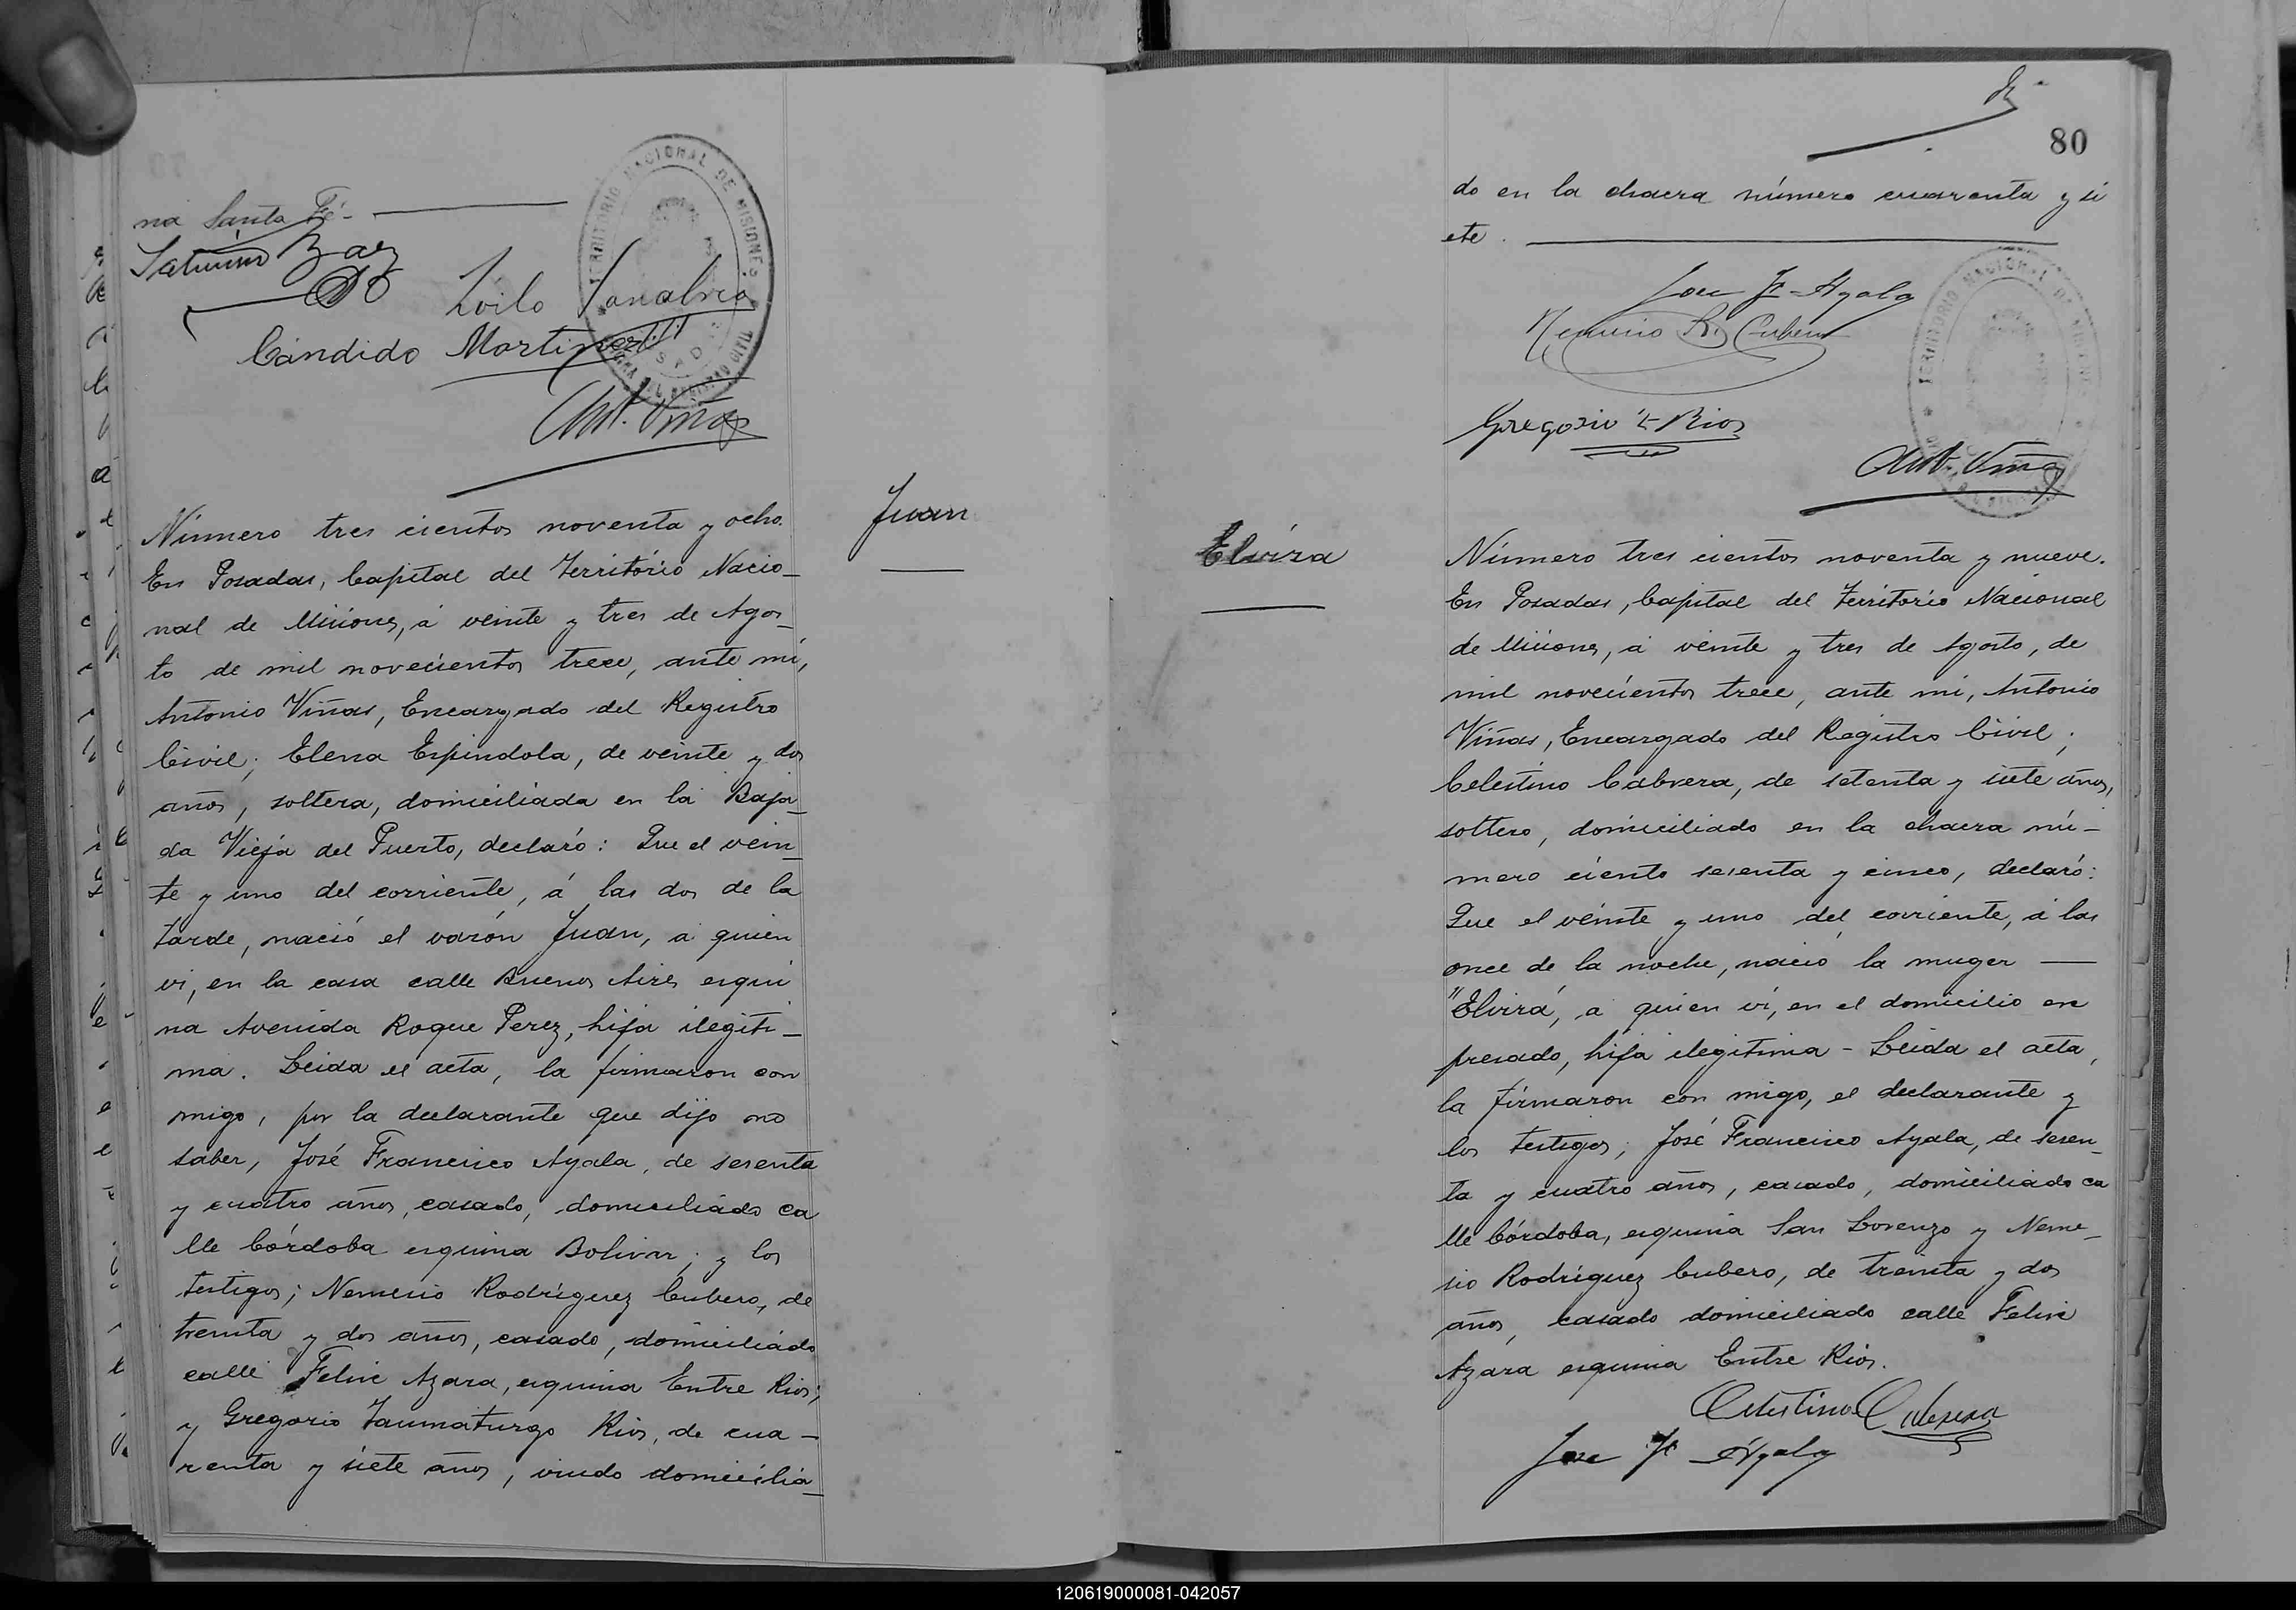 na Santa Fé-
Saturnino Baz
Zoilo Sanabria
Cándido Martinez
Ant. Viñas
TERRITORIO NACIONAL DE MISIONES
POSADAS
Juan
Número tres cientos noventa y ocho.
En Posadas, Capital del Território Nacio-
nal de Misiones, á veinte y tres de Agos-
to de mil novecientos trece, ante mí,
Antonio Viñas, Encargado del Registro
Civil; Elena Espindola, de veinte y dos
años, soltera, domiciliada en la Baja-
da Vieja del Puerto, declaró: Que el vein-
te y uno del corriente, á las dos de la
tarde, nació el varón Juan, a quien
ví, en la casa calle Buenos Aires esqui
na Avenida Roque Perez, hija ilegíti-
ma. Leida el acta, la firmaron con
migo, por la declarante que dijo no
saber, José Francisco Ayala, de sesenta
y cuatro años, casado, domiciliado ca
lle Córdoba esquina Bolivar; y los
testigos; Nemesio Rodríguez Cubero, de
treinta y dos años, casado, domiciliado
calle Felix Azara, esquina Entre Rios;
y Gregorio Taumaturgo Rios, de cua-
renta y siete años, viudo domicilia-
80
do en la chacra número cuarenta y si
ete.
Jose F. Ayala
Nemesio R. Cubero
Gregorio T. Rios
Ant. Viñas
TERRITORIO NACIONAL DE MISIONES
Elvira
Número tres cientos noventa y nueve.
En Posadas, Capital del Territorio Nacional
de Misiones, á veinte y tres de Agosto, de
mil novecientos trece, ante mí, Antonio
Viñas, Encargado del Registro Civil;
Celestino Cabrera, de setenta y siete años,
soltero, domiciliado en la chacra nú-
mero ciento sesenta y cinco, declaró:
Que el veinte y uno del corriente, á las
once de la noche, nació la muger —
"Elvira", a quien ví, en el domicilio ex
presado, hija ilegitima - Leida el acta,
la firmaron con migo, el declarante y
los testigos; José Francisco Ayala, de sesen-
ta y cuatro años, casado, domiciliado ca
lle Córdoba, esquina San Lorenzo y Neme-
sio Rodríguez Cubero, de treinta y dos
años, casado domiciliado calle Felix
Azara esquina Entre Rios.
Celestino Cabrera
Jose F. Ayala
120619000081-042057